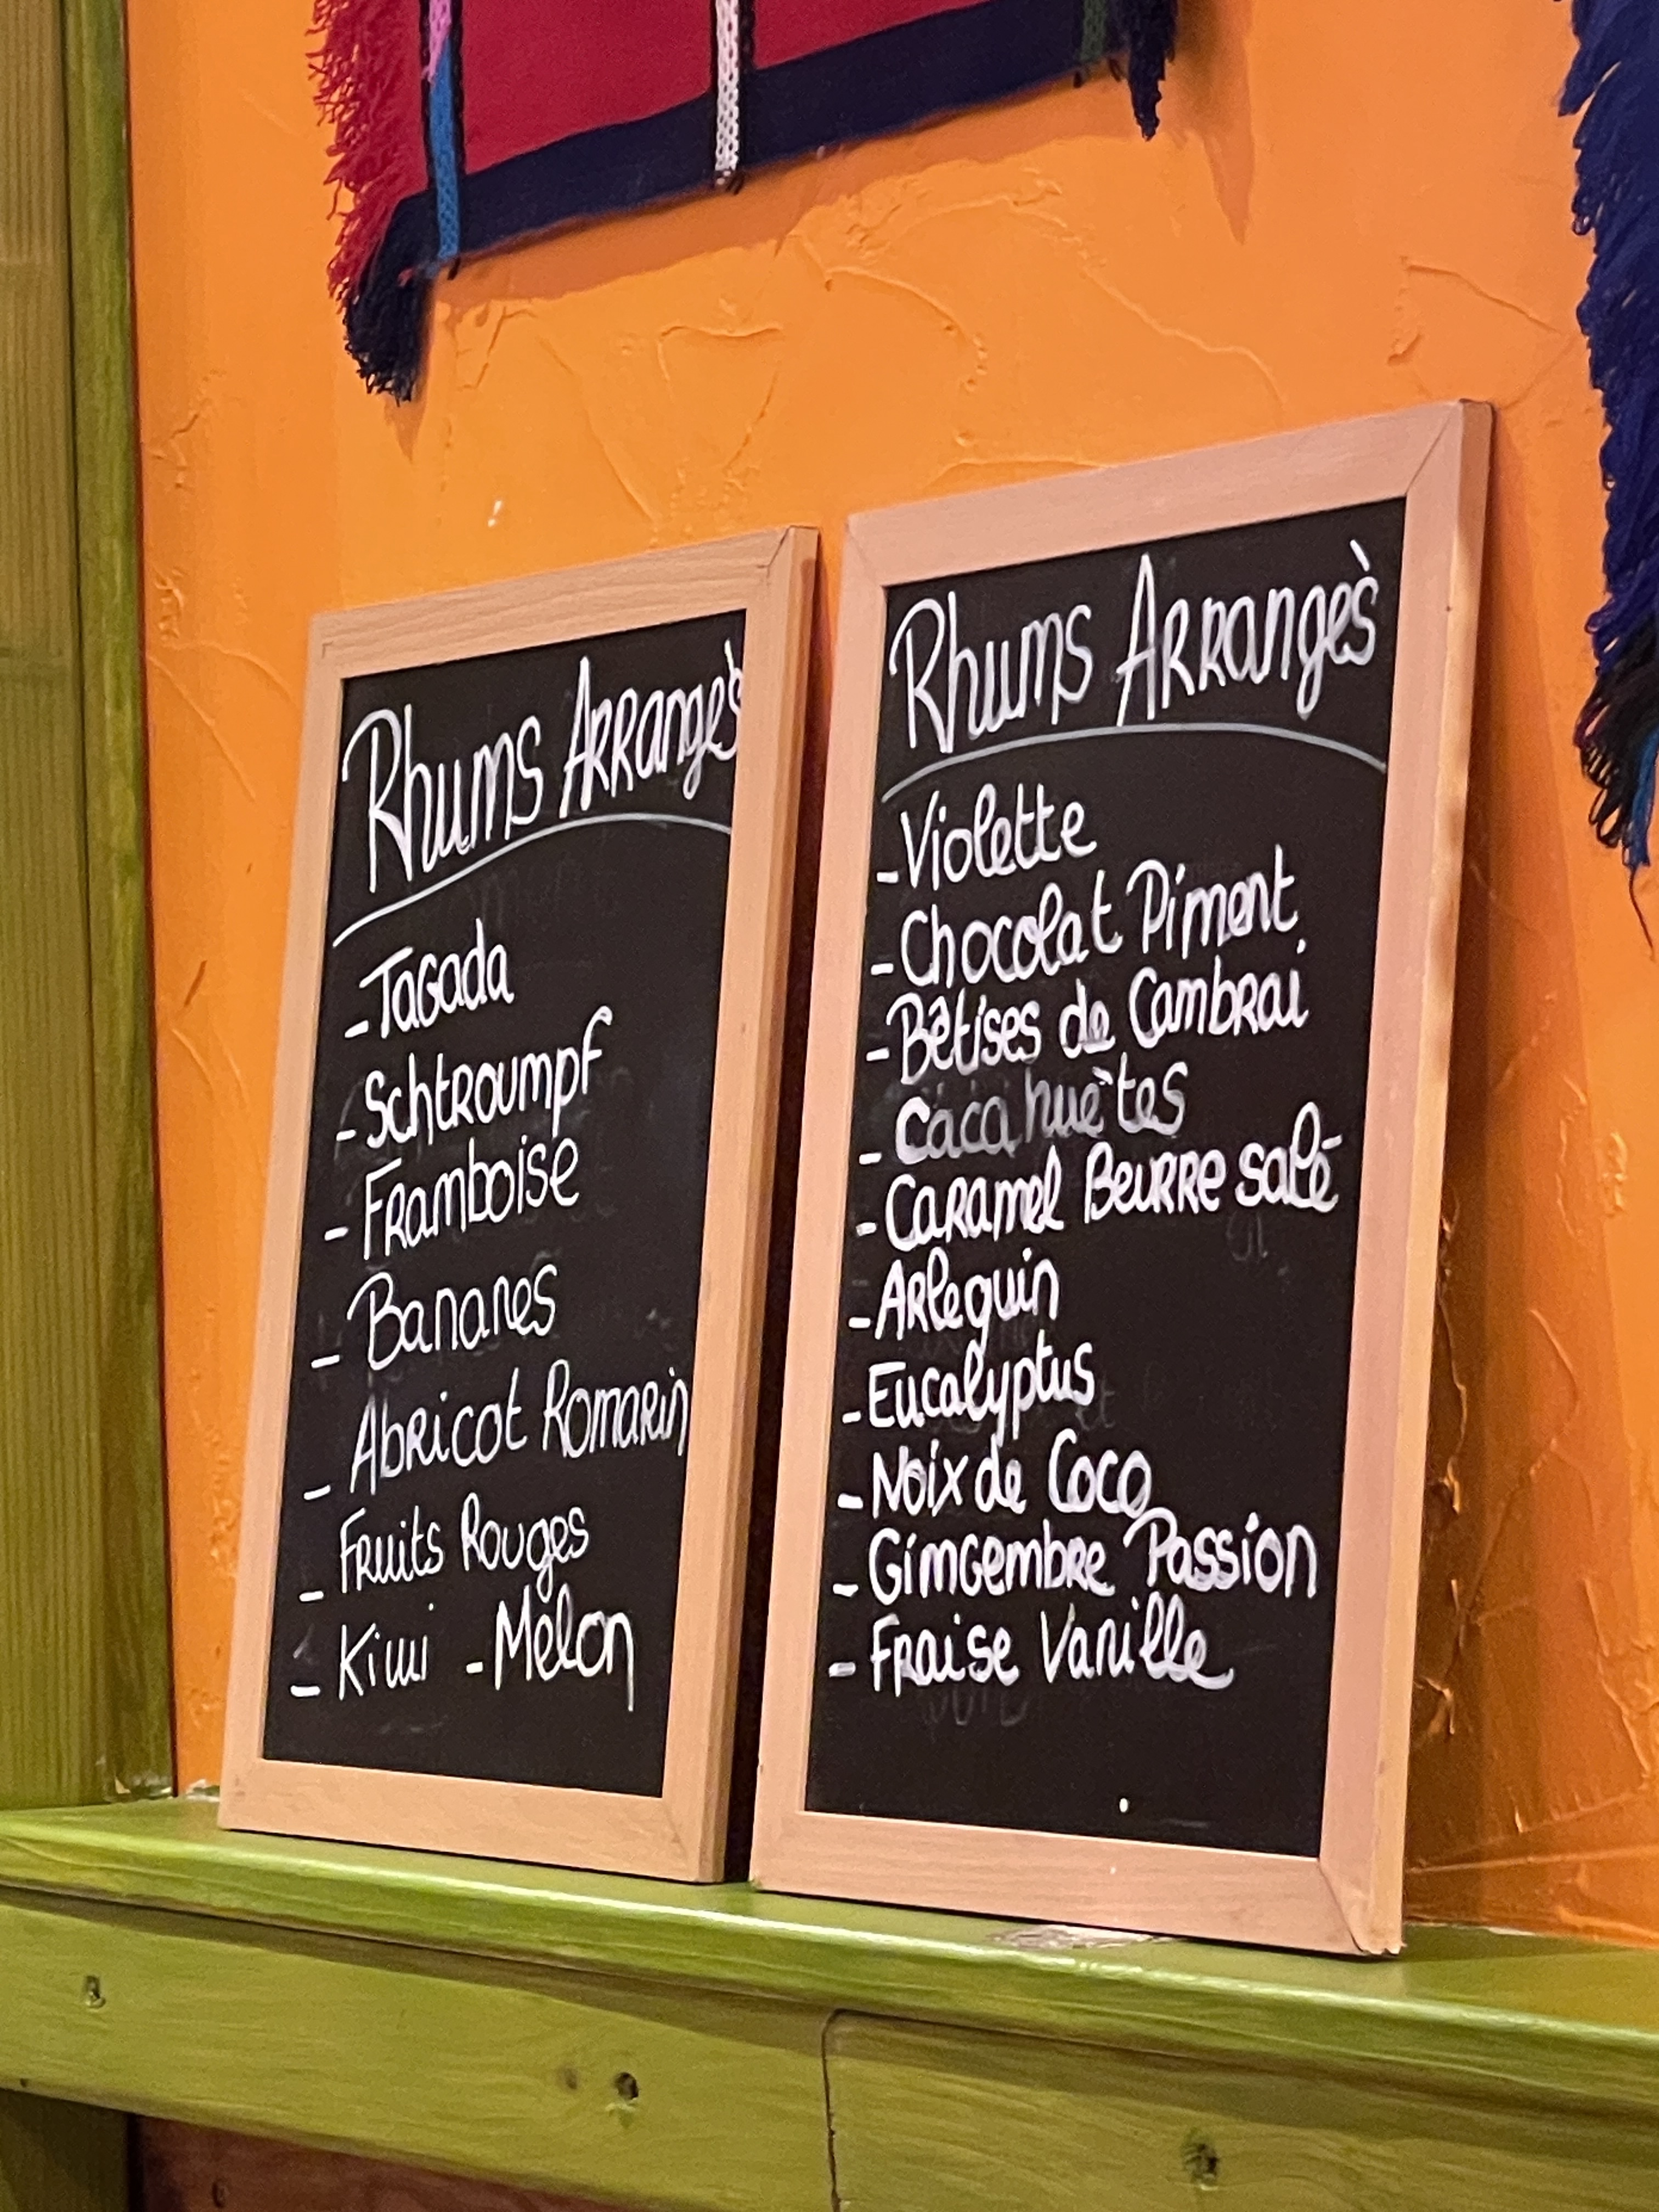 Rhums Arrangès
- Tagada
- Schtroumpf
- Framboise
- Bananes
- Abricot Romarin
- Fruits Rouges
- Kiwi - Melon
Rhums Arrangès
- Violette
- Chocolat Piment
- Bêtises de Cambrai
- Cacahuètes
- Caramel Beurre salé
- Arlequin
- Eucalyptus
- Noix de Coco
- Gimgembre Passion
- Fraise Vanille